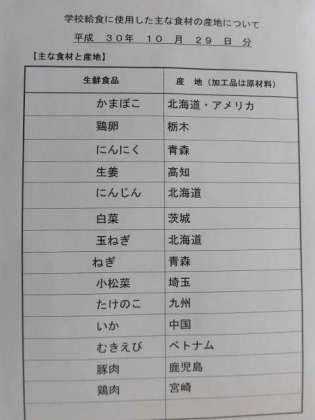 学校給食に使用した主な食材の産地について
平成 30年 10 月 29 日 分
【主な食材と産地】
生鮮食品 産 地（加工品は原材料）
かまぼこ 北海道・アメリカ
鶏卵 栃木
にんにく 青森
生姜 高知
にんじん 北海道
白菜 茨城
玉ねぎ 北海道
ねぎ 青森
小松菜 埼玉
たけのこ 九州
いか 中国
むきえび ベトナム
豚肉 鹿児島
鶏肉 宮崎